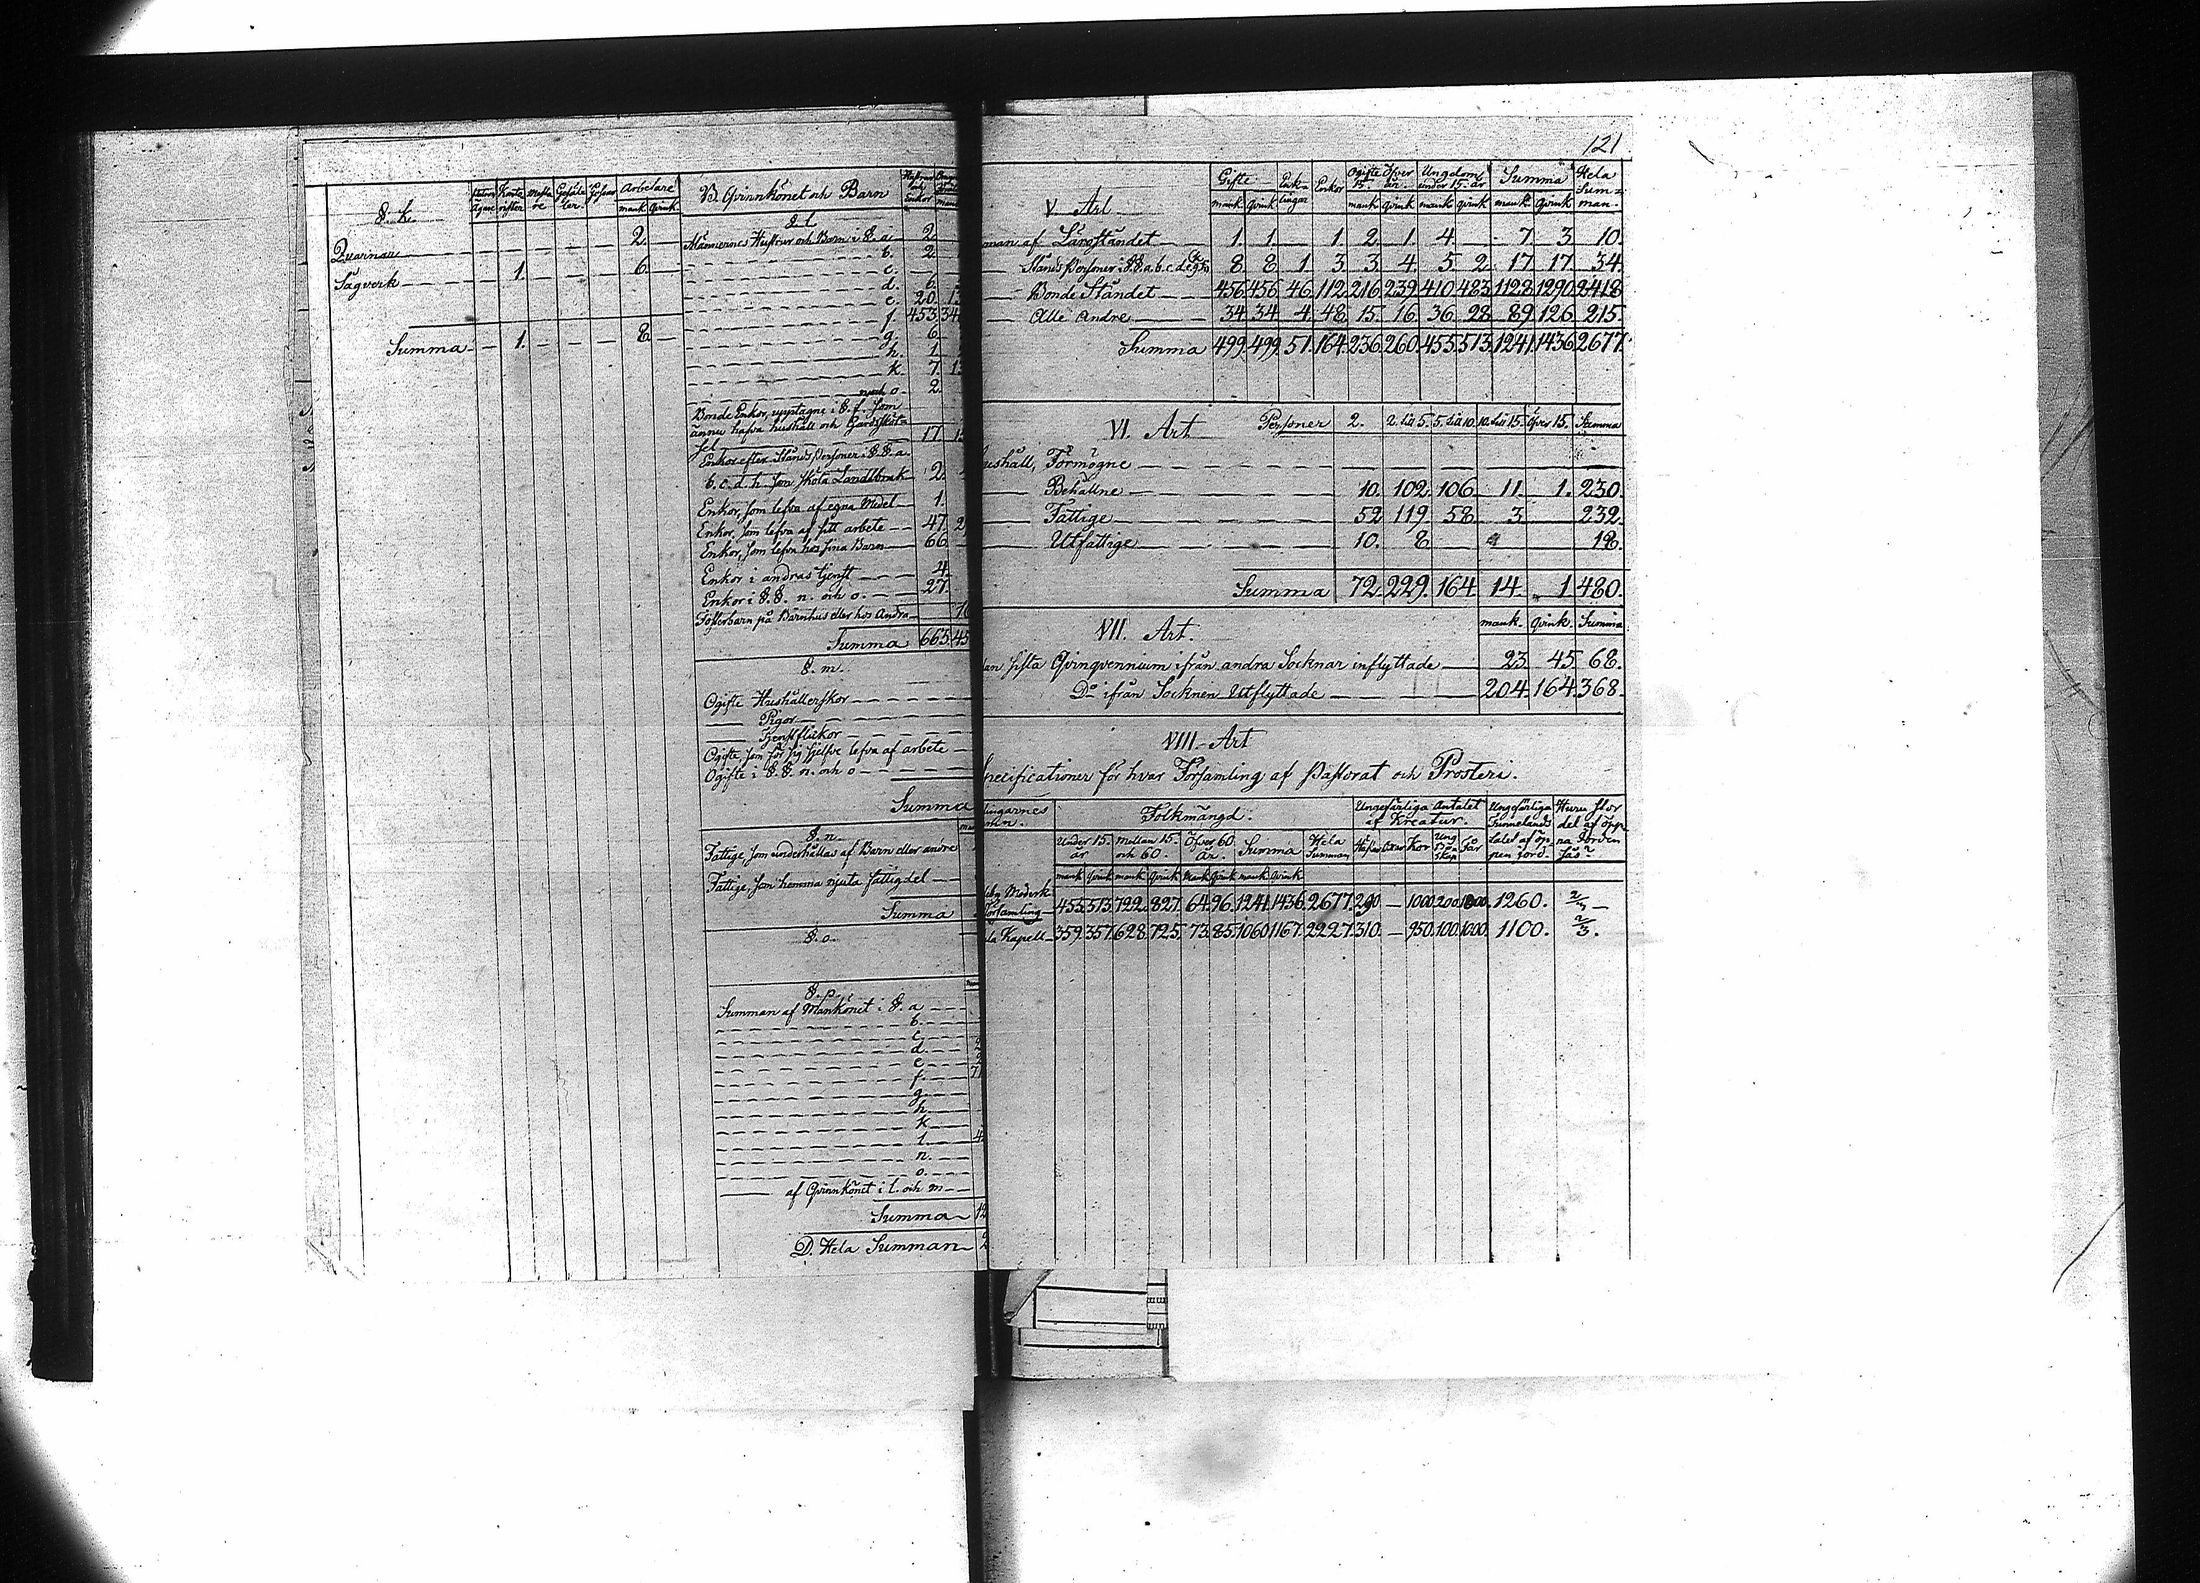 121
§. k.
Konto rister
Arbetare
mank. Qvink.
Qvarnar 2.
Sågverk 1. 6.
Summa 1. 8.
B. Qvinnkönet och Barn
§. l
Männernes Hustrur och Barn i §. a 2.
b. 2.
c.
d. 6.
e. 20.
f. 453.
g. 6.
h. 1.
k. 7.
o. 2.
Bonde Enkor, upptagne i §. f. som
ännu hafva hushåll och Gårdsskötsel 17.
Enkor efter Stånds Personer i §. §. a.
b. c. d. h. som sköta Landtbruk 2.
Enkor, som lefva af egna Medel 1.
Enkor, som lefva af sitt arbete 47.
Enkor, som lefva hos sina Barn 66.
Enkor i andras tjenst 4.
Enkor i §. §. n. och o. 27.
Fosterbarn på Barnhus eller hos Andra
Summa 665.
§. m.
Ogifte Hushållerskor
Pigor
Tjenstflickor
Ogifte, som för sig sjelfve lefva af arbete
Ogifte i §. §. n. och o
Summa
§. n.
Fattige, som underhållas af Barn eller andre
Fattige, som hemma njuta fattigdel
Summa
§. o.
§. p.
Summan af Mankönet i §. a
b.
c.
d.
e.
f.
g.
h.
k
l.
n.
o.
af Qvinnkönet i l. och m
Summa
D. Hela Summan
V. Art
Gifte Enklingar Enkor Ogifte Öfver 15. år. Ungdom under 15. år Summa Hela Summan.
mank. Qvink mank. Qvink mank. Qvink mank. Qvink.
man af Läroståndet 1. 1. 1. 2. 1. 4. 7. 3. 10.
Stånds Personer i §. §. a. b. c. d. 8. 8. 1. 3. 3. 4. 5. 2. 17. 17. 34.
Bonde Ståndet 456. 456. 46. 112. 216. 239. 410. 483. 1128. 1290. 2418
Alle Andre 34. 34. 4. 48. 15. 16. 36. 28. 89. 126. 215.
Summa 499. 499. 51. 164. 236. 260. 455. 513. 1241. 1436. 2677.
VI. Art Personer 2. 2. till 5. 5. till 10. 10. till 15. öfver 15. Summa
ushåll, Förmögne
Behållne 10. 102. 106. 11. 1. 230.
Fattige 52. 119. 58. 3. 232.
Utfattige 10. 8. 18.
Summa 72. 229. 164. 14. 1. 480.
VII. Art.
mank. Qvink. Summa
an sista Qvinqvennium ifrån andra Socknar inflyttade 23. 45. 68.
Do ifrån Socknen Utflyttade 204. 164. 368.
VIII. Art
Specificationer för hvar Församling af Pastorat och Prosteri.
lingarnes
Folkmängd.
Ungefärliga Antalet af Kreatur.
Ungefärliga Tunnelands talet af öppen jord.
Huru stor del af öppna Jorden sås?
Under 15. år Mellan 15. och 60. Öfver 60 år. Summa Hela Summan Hästar Oxar Kor Ungboskap Får
mank Qvink mank. Qvink mank Qvink mank Qvink
Moderk
Församling 455. 513. 722. 827. 64. 96. 1241. 1436. 2677. 290 1000. 200. 1260. 2/3
Kapell 359. 357. 628. 725. 73. 85. 1060. 1167. 2227. 310. 950. 100. 1000. 1100. 2/3.